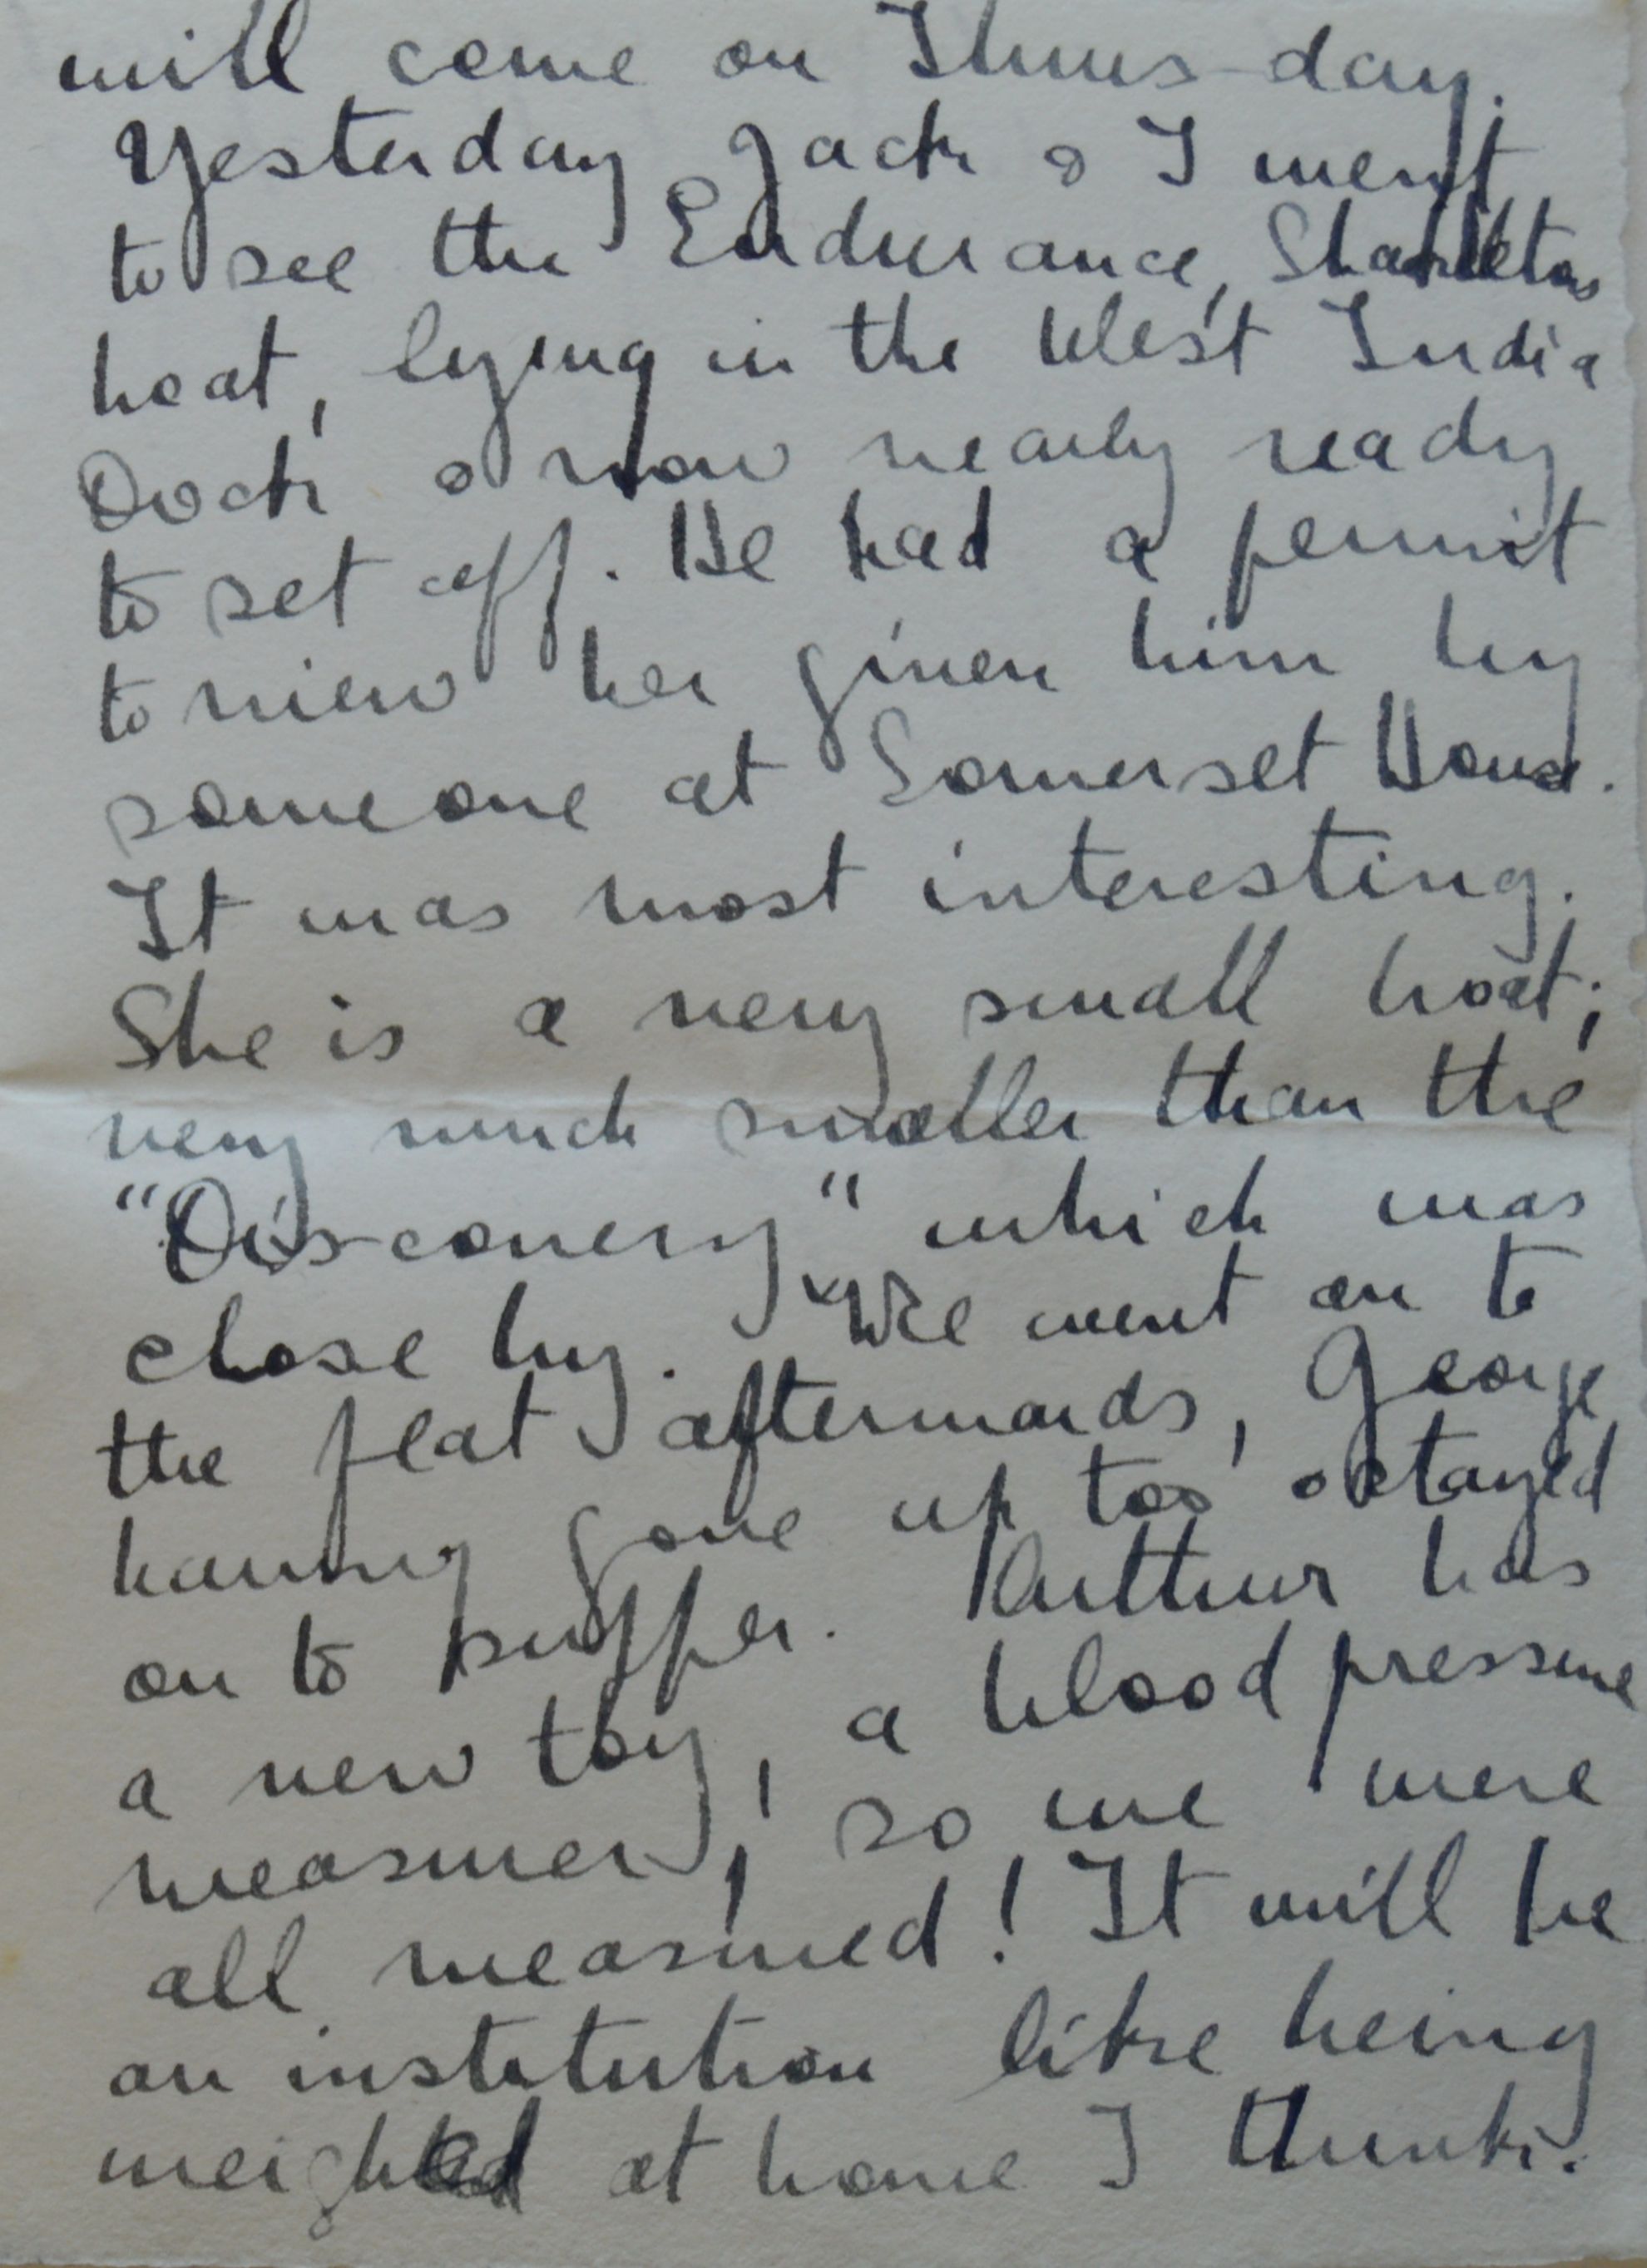 will come on Thurs-day.
Yesterday Jack & I went
to see the Endurance, Shackletons
boat, lying in the West India
Dock & now nearly ready
to set off. He had a permit
to view her given him by
someone at Somerset House.
It was most interesting.
She is a very small boat;
very much smaller than the
"Discovery" which was
close by. We went on to
the flat afterwards, George
having gone up too, & stayed
on to supper. Arthur has
a new toy, a blood pressure
measurer, so we were
all measured! It will be
an institution like being
weighed at home I think.